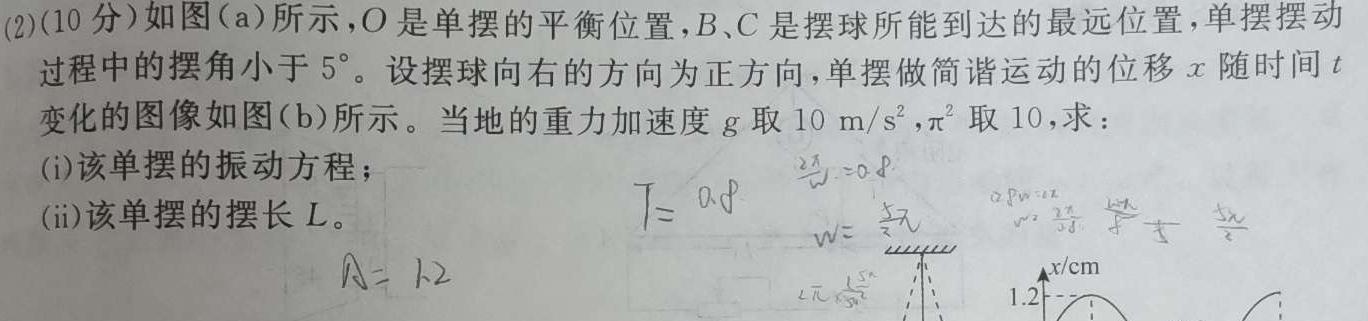 (2)(10 分)如图(a)所示,O 是单摆的平衡位置,B、C 是摆球所能到达的最远位置,单摆摆动
过程中的摆角小于 5°。设摆球向右的方向为正方向,单摆做简谐运动的位移 x 随时间 t
变化的图像如图(b)所示。当地的重力加速度 g 取 10 m/s²,π² 取 10,求:
(i)该单摆的振动方程;
(ii)该单摆的摆长 L。
T= 0.8
2π/w=0.8
w= 5/2 π
5π/2
A= 1.2
x/cm
1.2